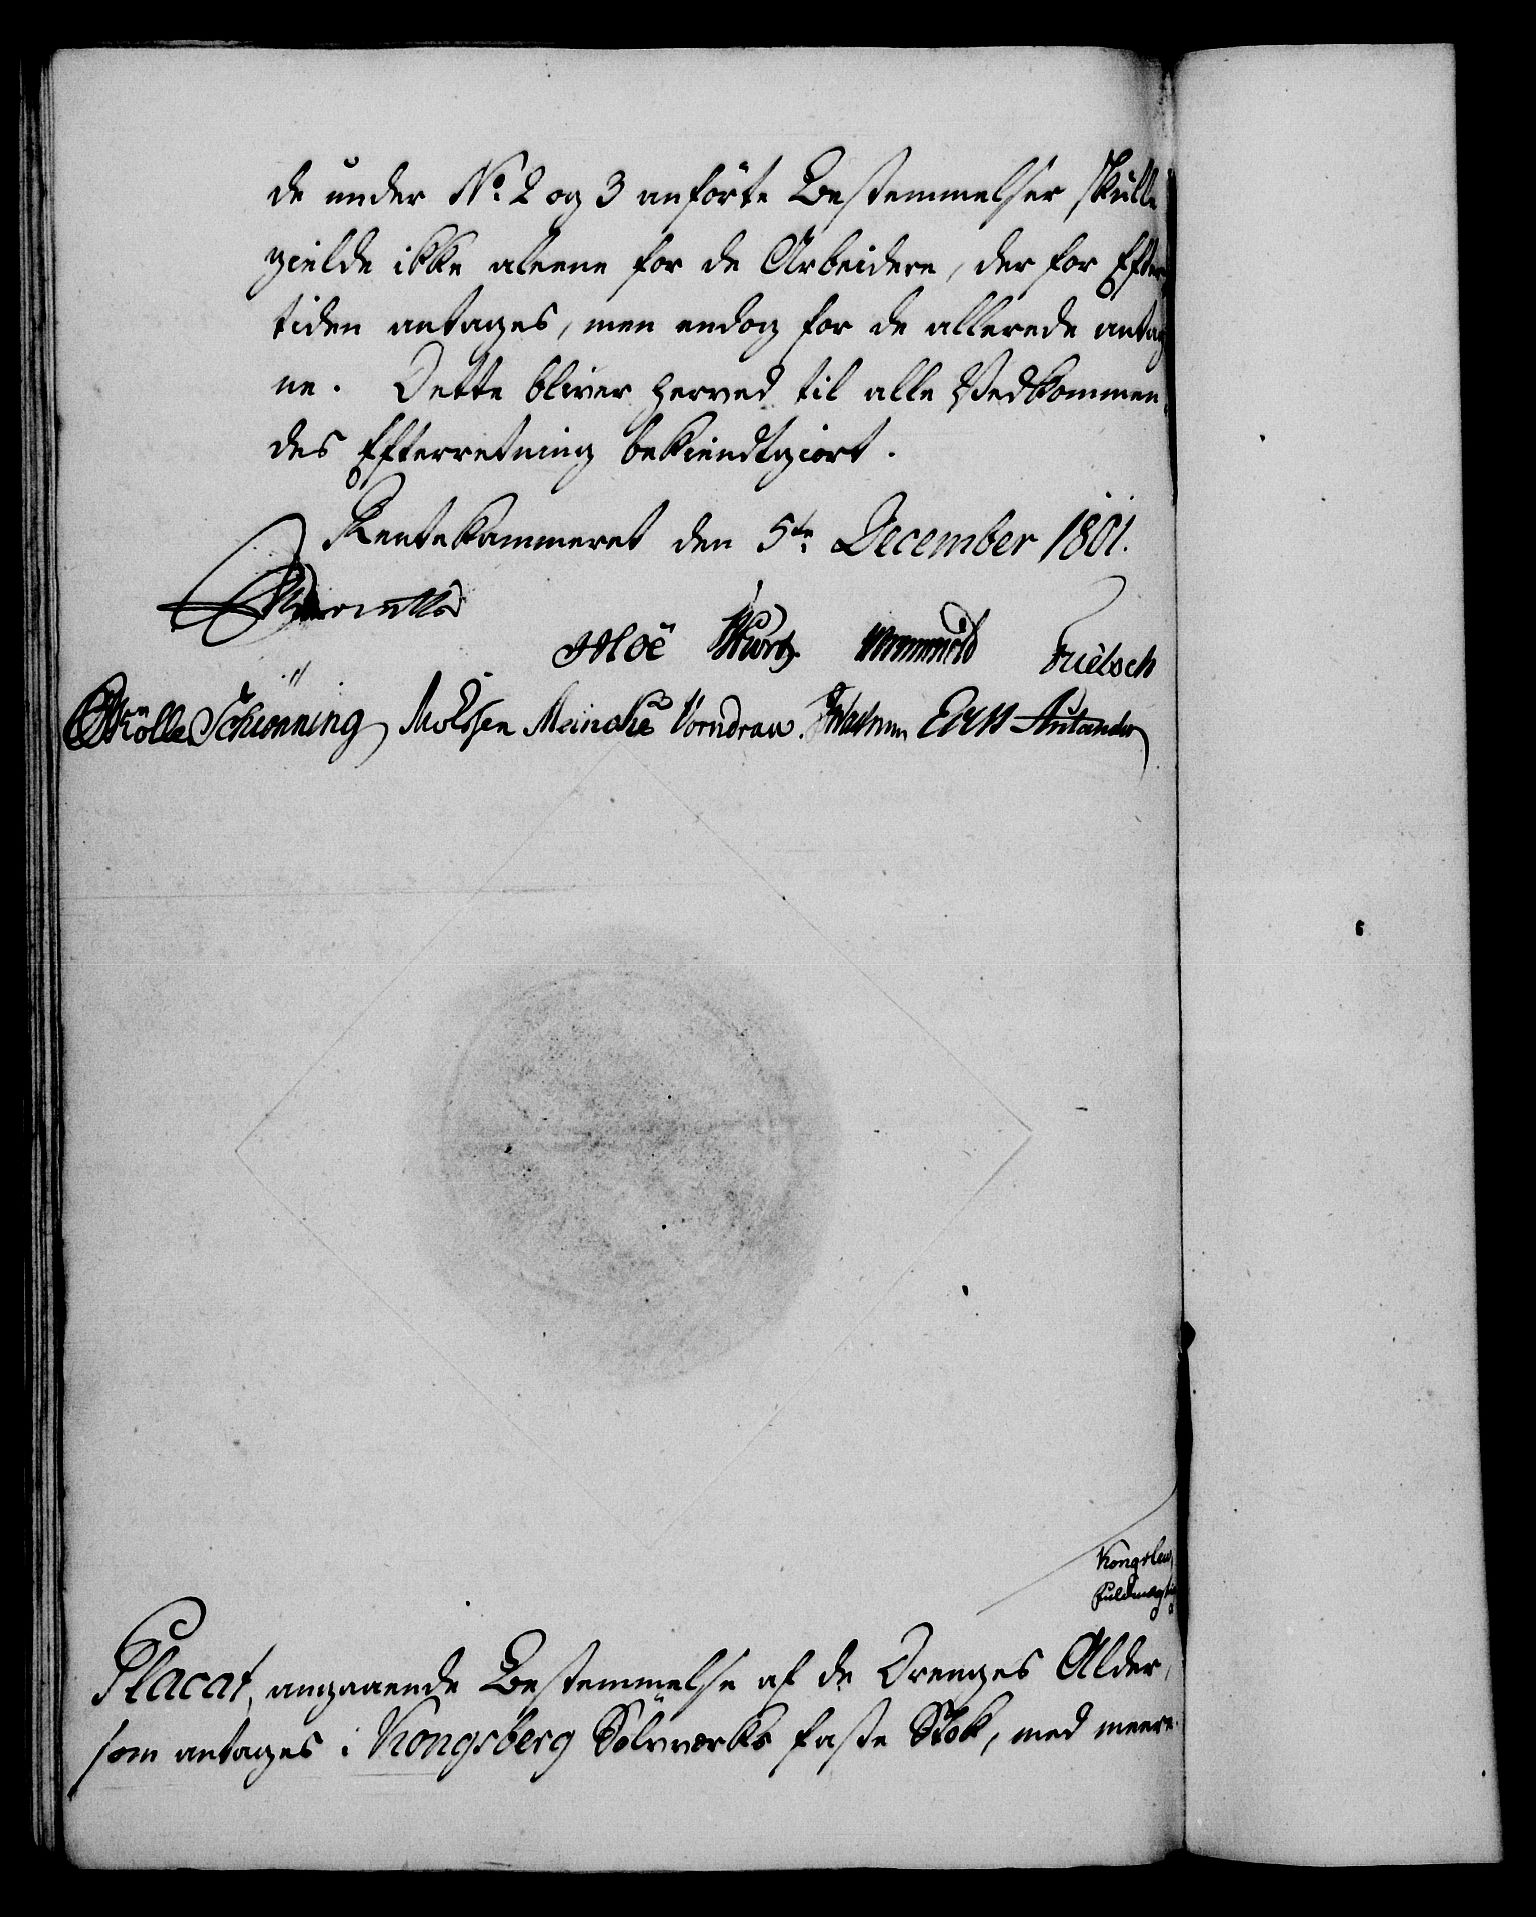 de under No. 2 og 3 anförte Bestemmelser skulle
gielde ikke aleene for de Arbeidere, der for Efter,
tiden antages, men endog for de allerede antag
ne. Dette bliver herved til alle Vedkommen,
des Efterretning bekiendtgiort.
Rentekammeret den 5te December 1801.
Reventlow
Moë Wurtz Wormskiold Frielsch
Mölle Schiønning Meinche Vorndran
Kongslew,
Fuldmægtig
Placat, angaaende Bestemmelse af de Drenges Alder,
som antages i Kongsberg Sölvværks faste Stok, med meere.